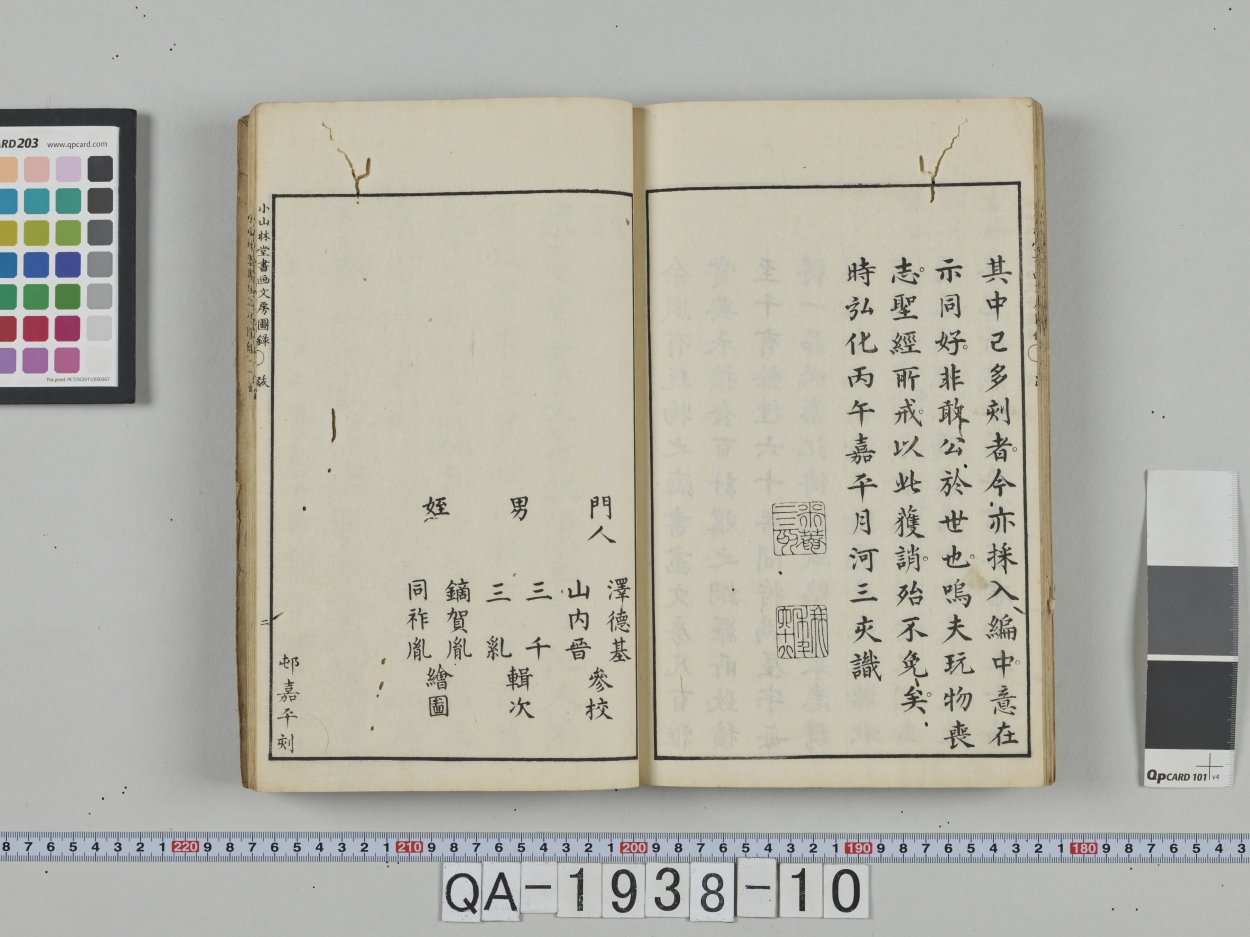 其中已多刻者。今亦採入編中。意在
示同好。非敢公於世也。嗚夫玩物喪
志。聖經所戒。以此獲誚。殆不免矣。
時弘化丙午嘉平月河三亥識
門人
澤德基
山内晉
參校
男
三千
三乿
輯次
姪
鏑賀胤
同祚胤
繪圖
邨嘉平刻
小山林堂書画文房圖錄
跋
二
CARD 203 www.qpcard.com
QpCARD 101 v4
8 7 6 5 4 3 2 1 220 9 8 7 6 5 4 3 2 1 210 9 8 7 6 5 4 3 2 1 200 9 8 7 6 5 4 3 2 1 190 9 8 7 6 5 4 3 2 1 180 9 8 7 6 5 4 3
QA-1938-10